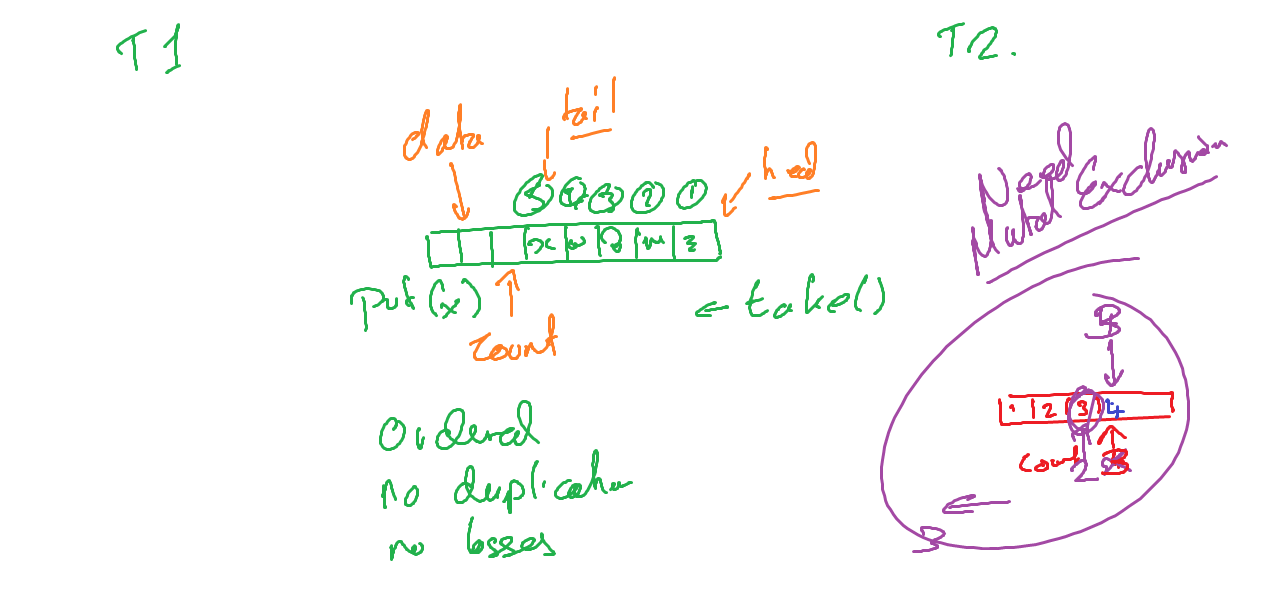 T1
T2.
tail
data
head
5 4 3 2 1
x w z m z
put(x)
← take()
count
Ordered
no duplication
no losses
Need
Mutal Exclusion
1 2 3 4
count 2